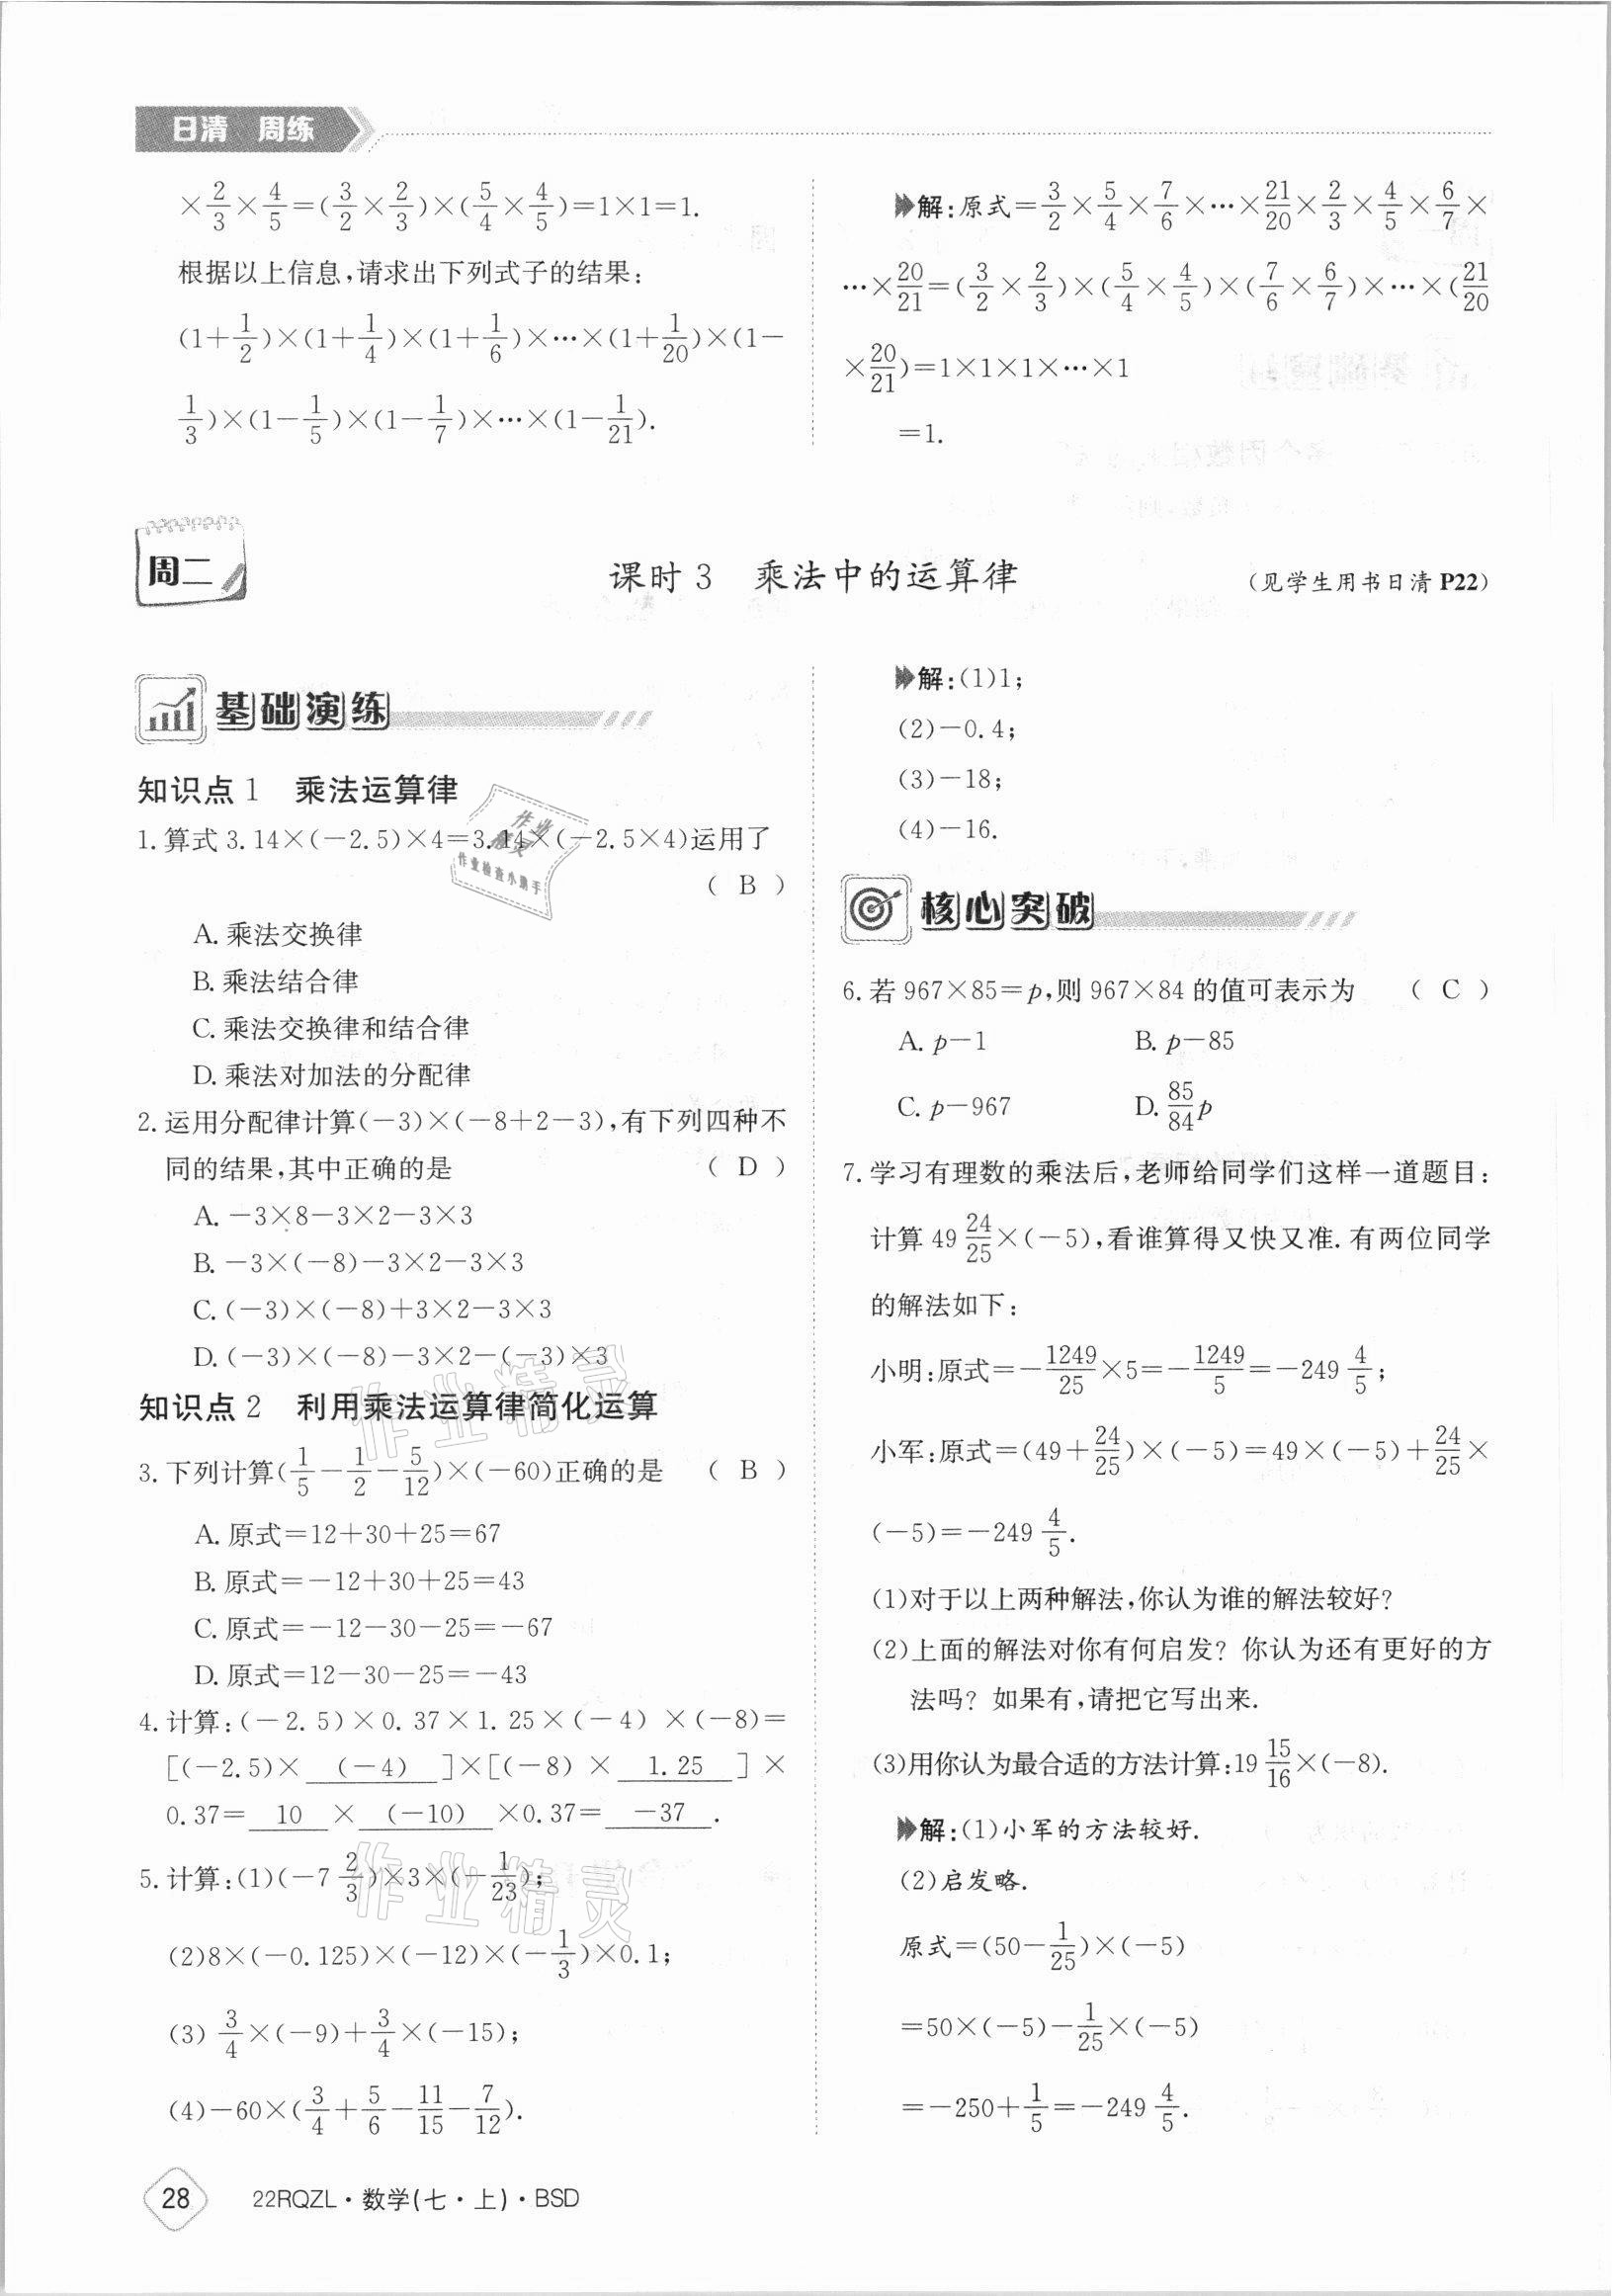 日清 周练
×2/3×4/5=(3/2×2/3)×(5/4×4/5)=1×1=1.
根据以上信息,请求出下列式子的结果:
(1+1/2)×(1+1/4)×(1+1/6)×…×(1+1/20)×(1-
1/3)×(1-1/5)×(1-1/7)×…×(1-1/21).
解:原式=3/2×5/4×7/6×…×21/20×2/3×4/5×6/7×
…×20/21=(3/2×2/3)×(5/4×4/5)×(7/6×6/7)×…×(21/20
×20/21)=1×1×1×…×1
=1.
周二
课时3 乘法中的运算律
(见学生用书日清P22)
基础演练
知识点1 乘法运算律
1.算式3.14×(-2.5)×4=3.14×(-2.5×4)运用了
( B )
A.乘法交换律
B.乘法结合律
C.乘法交换律和结合律
D.乘法对加法的分配律
2.运用分配律计算(-3)×(-8+2-3),有下列四种不
同的结果,其中正确的是 ( D )
A.-3×8-3×2-3×3
B.-3×(-8)-3×2-3×3
C.(-3)×(-8)+3×2-3×3
D.(-3)×(-8)-3×2-(-3)×3
知识点2 利用乘法运算律简化运算
3.下列计算(1/5-1/2-5/12)×(-60)正确的是 ( B )
A.原式=12+30+25=67
B.原式=-12+30+25=43
C.原式=-12-30-25=-67
D.原式=12-30-25=-43
4.计算:(-2.5)×0.37×1.25×(-4)×(-8)=
[(-2.5)× (-4) ]×[(-8)× 1.25 ]×
0.37= 10 × (-10) ×0.37= -37 .
5.计算:(1)(-7 2/3)×3×(-1/23);
(2)8×(-0.125)×(-12)×(-1/3)×0.1;
(3) 3/4×(-9)+3/4×(-15);
(4)-60×(3/4+5/6-11/15-7/12).
解:(1)1;
(2)-0.4;
(3)-18;
(4)-16.
核心突破
6.若967×85=p,则967×84的值可表示为 ( C )
A. p-1 B. p-85
C. p-967 D. 85/84 p
7.学习有理数的乘法后,老师给同学们这样一道题目:
计算49 24/25×(-5),看谁算得又快又准.有两位同学
的解法如下:
小明:原式=-1249/25×5=-1249/5=-249 4/5;
小军:原式=(49+24/25)×(-5)=49×(-5)+24/25×
(-5)=-249 4/5.
(1)对于以上两种解法,你认为谁的解法较好?
(2)上面的解法对你有何启发? 你认为还有更好的方
法吗? 如果有,请把它写出来.
(3)用你认为最合适的方法计算:19 15/16×(-8).
解:(1)小军的方法较好.
(2)启发略.
原式=(50-1/25)×(-5)
=50×(-5)-1/25×(-5)
=-250+1/5=-249 4/5.
作业
精灵
作业检查小助手
作业精灵
作业精灵
28 22RQZL·数学(七·上)·BSD